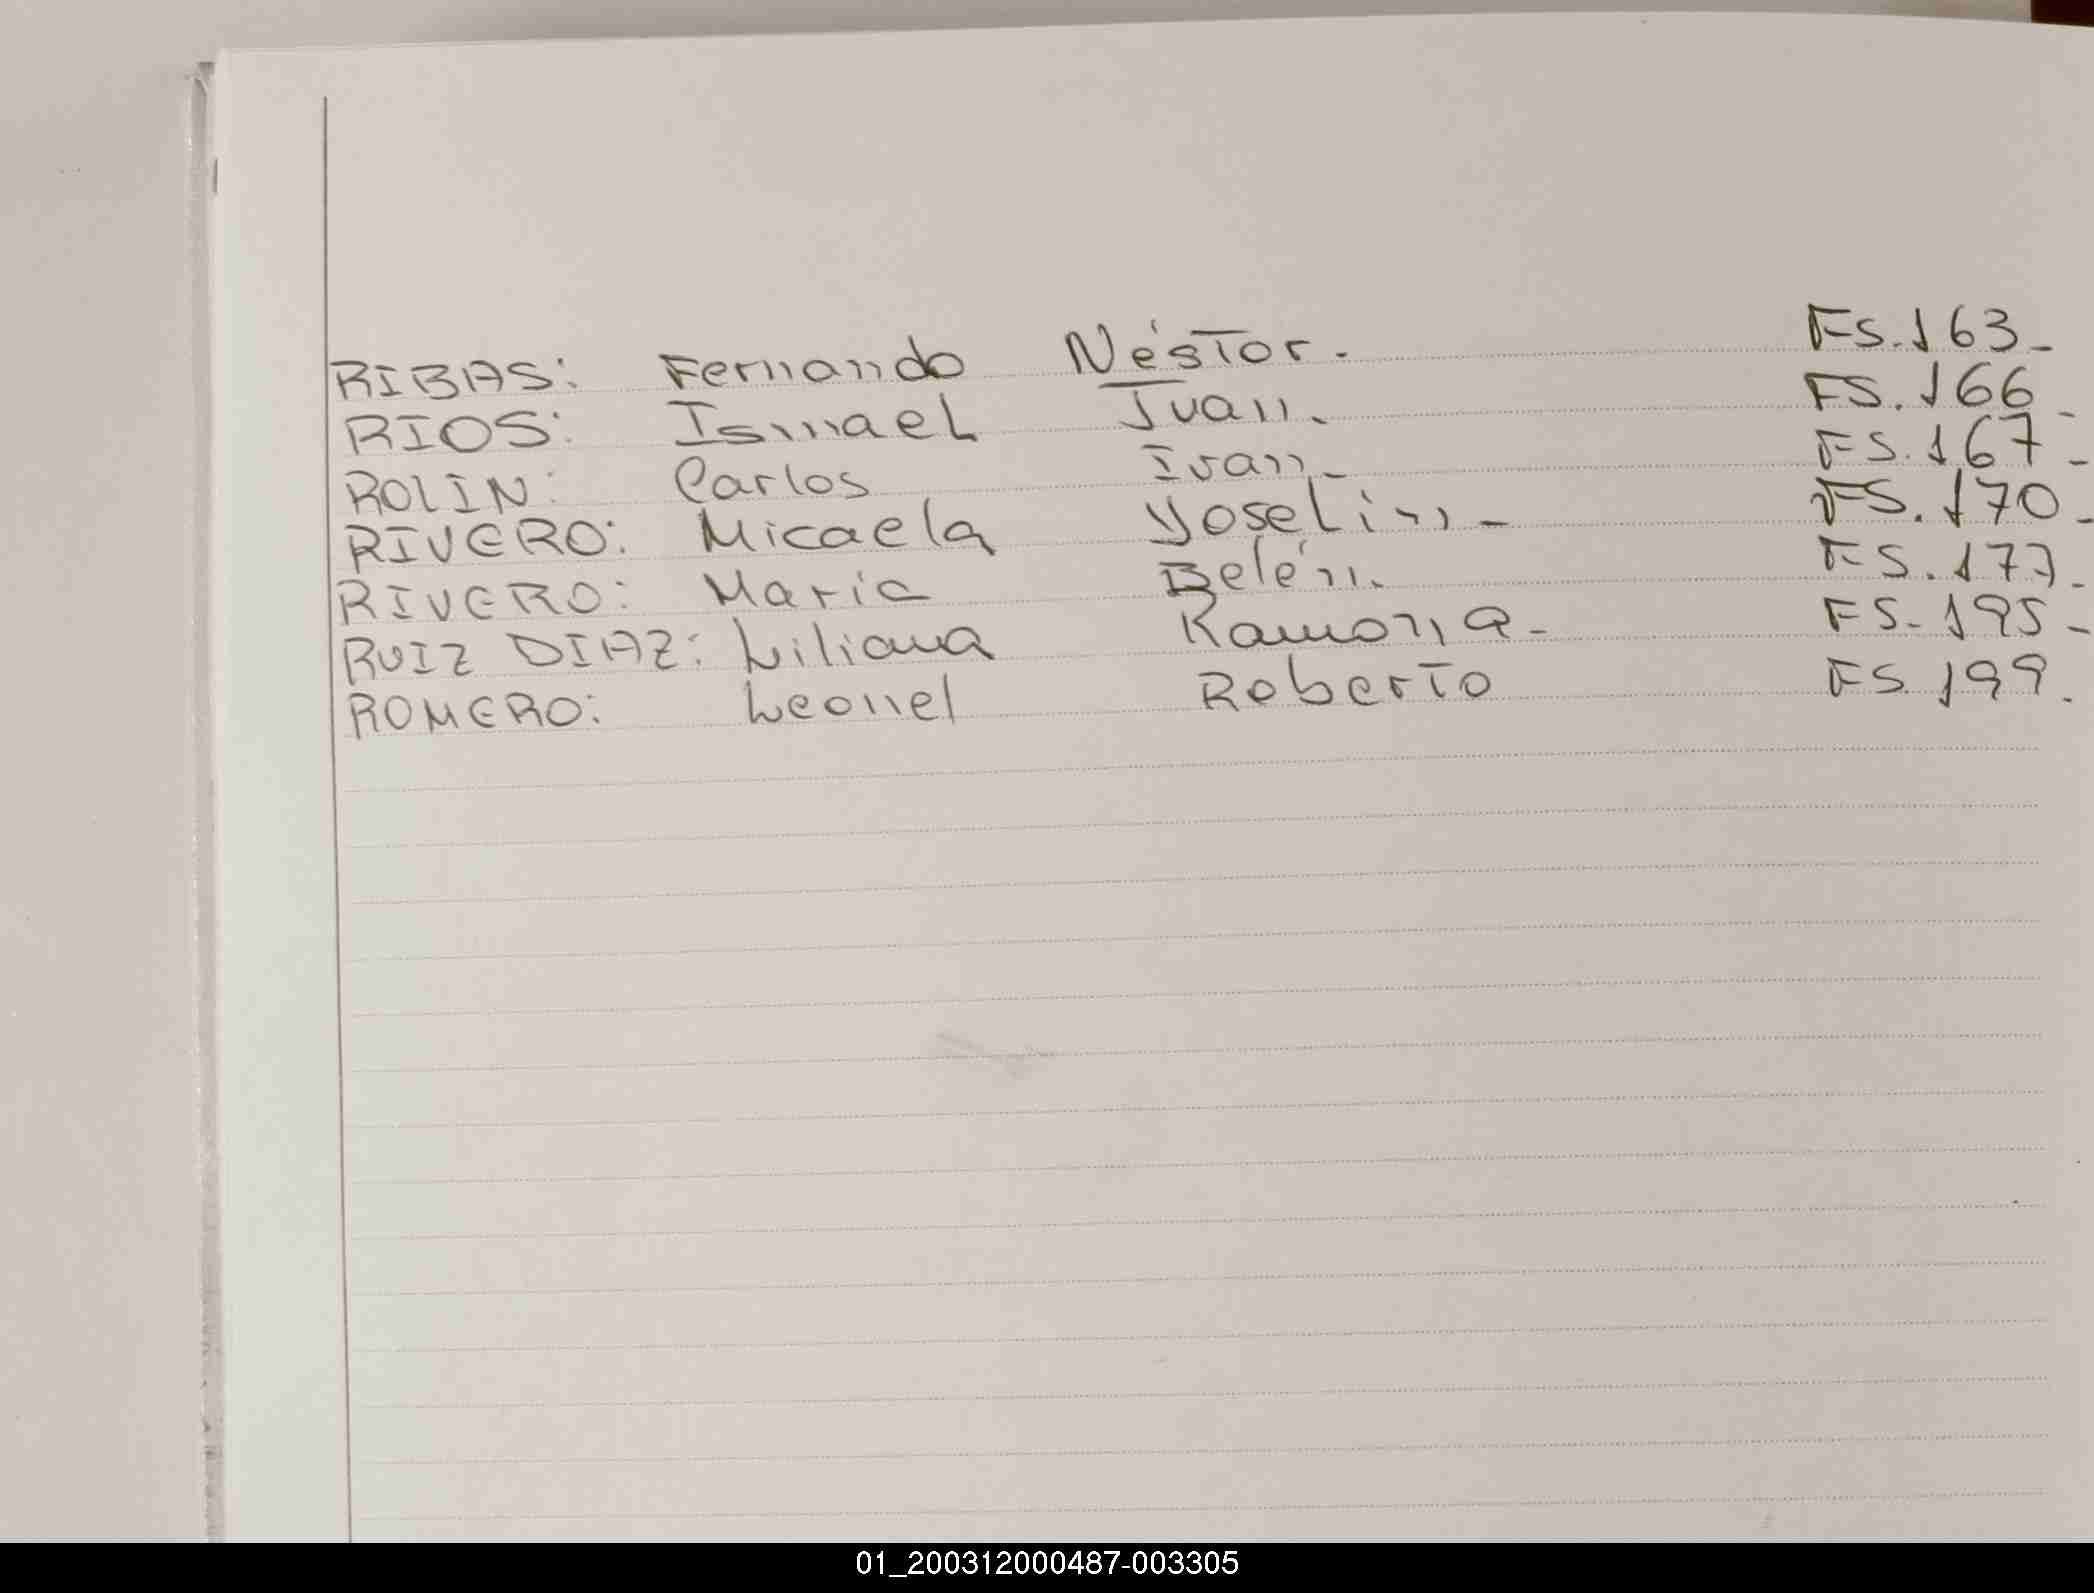 RIBAS: Fernando Néstor. FS. 163_
RIOS: Ismael Juan. FS. 166_
ROLIN: Carlos Ivan_ FS. 167_
RIVERO: Micaela Yoselin_ FS. 170_
RIVERO: Maria Belén. FS. 177_
RUIZ DIAZ: Liliana Ramona_ FS. 195_
ROMERO: Leonel Roberto FS. 199.
01_200312000487-003305